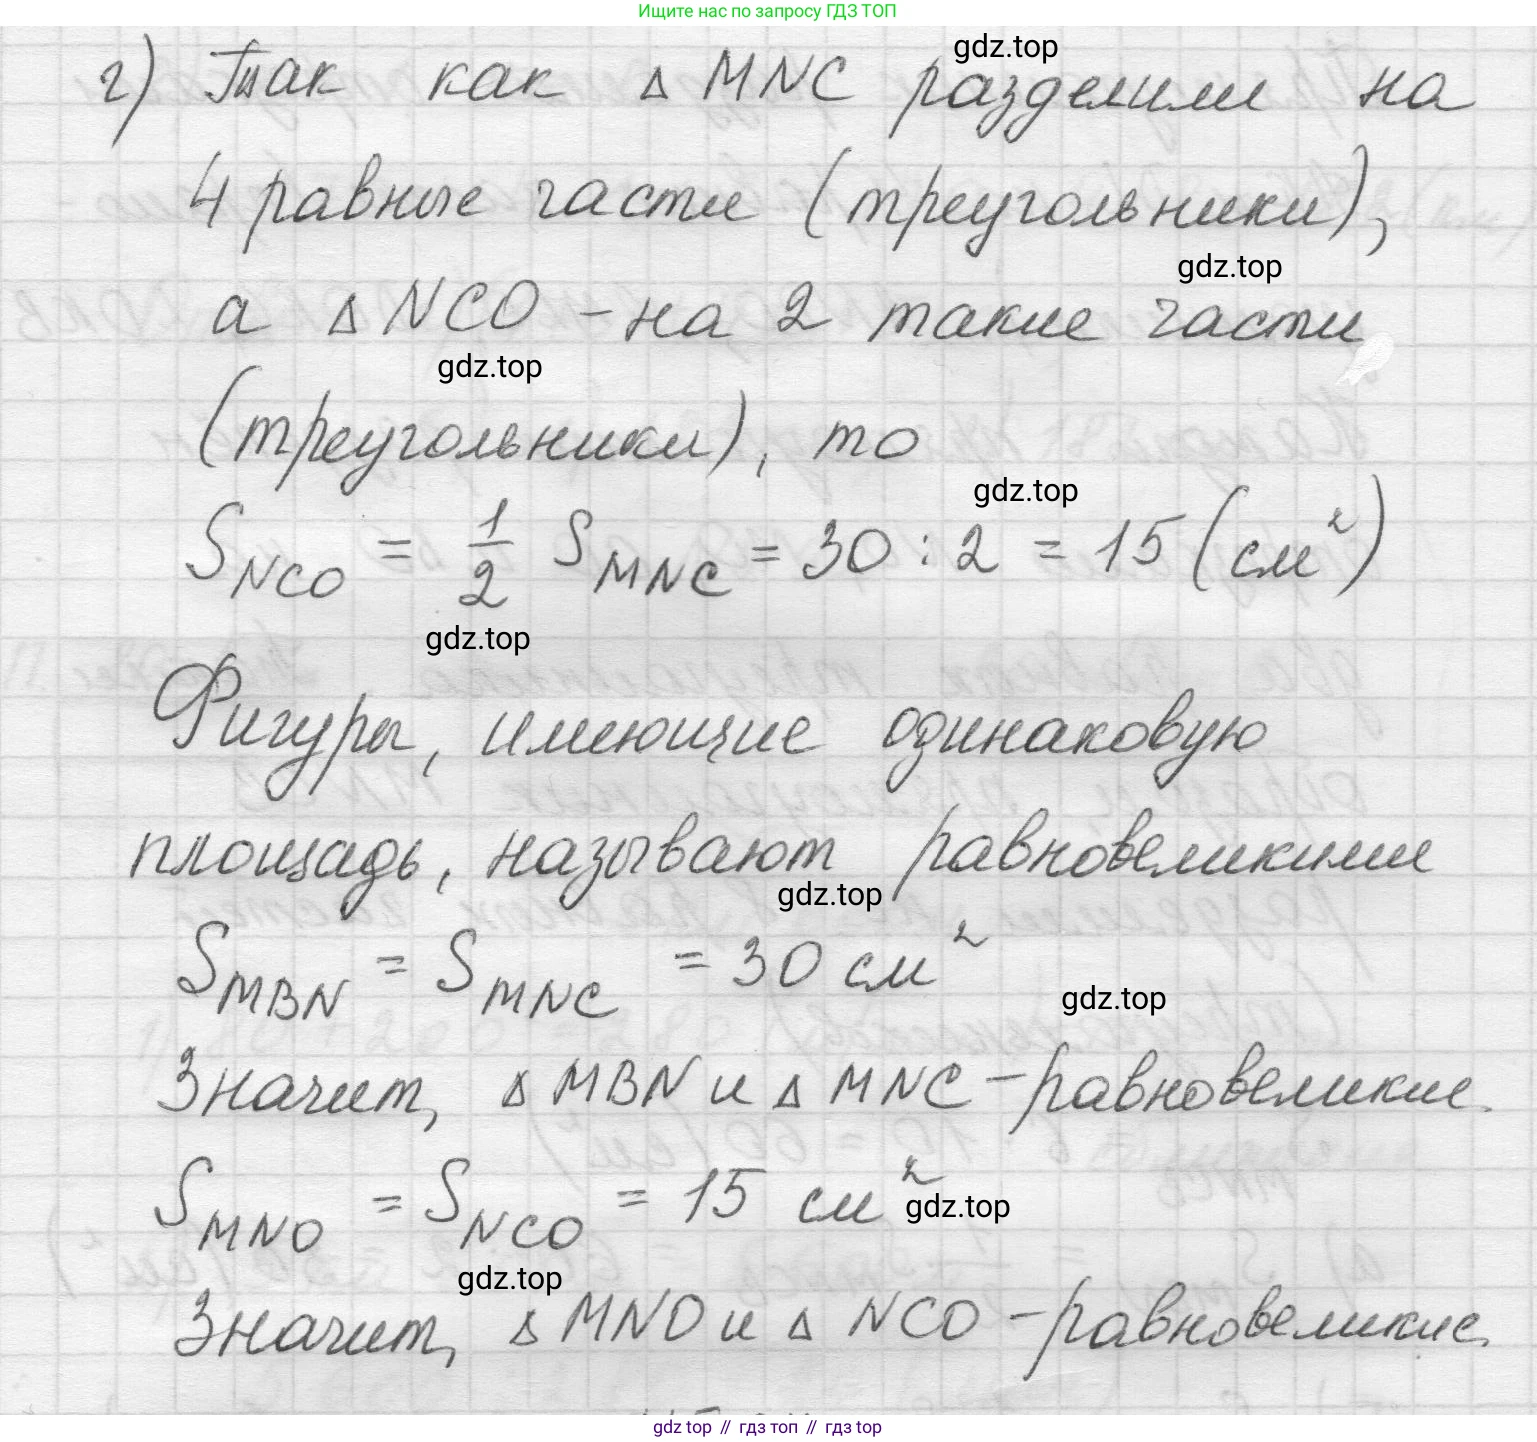 Ищите нас по запросу ГДЗ ТОП
gdz.top
г) Так как △ MNC разделили на
4 равные части (треугольники),
gdz.top
а △ NCO - на 2 такие части
gdz.top
(треугольники), то
gdz.top
S_NCO = 1/2 S_MNC = 30 : 2 = 15 (см²)
gdz.top
Фигуры, имеющие одинаковую
площадь, называют равновеликими
gdz.top
S_MBN = S_MNC = 30 см²
gdz.top
Значит, △ MBN и △ MNC - равновеликие.
S_MNO = S_NCO = 15 см²
gdz.top
gdz.top
Значит, △ MNO и △ NCO - равновеликие.
gdz top // гдз топ // гдз top